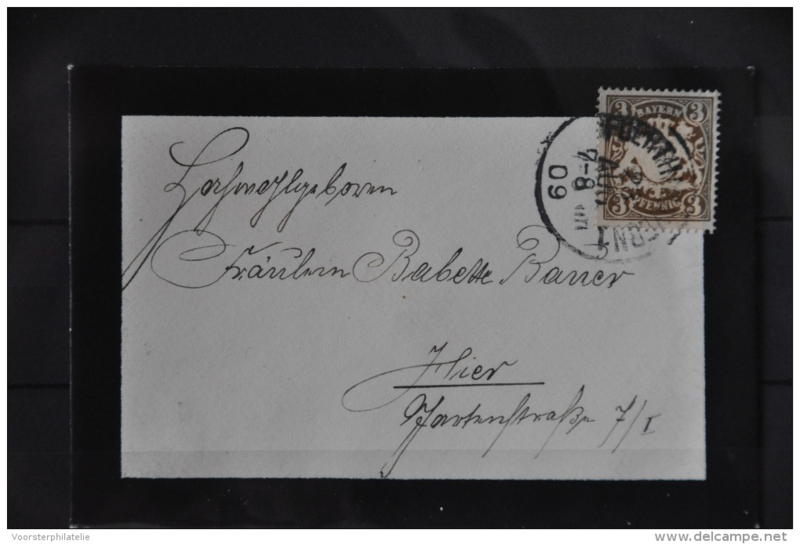 3 BAYERN 3
3 PFENNIG 3
8-4
09
Hochwohlgeboren
Fräulein Babette Bauer
Hier
Gartenstraße 7/I
Voorsterphilatelie
© delcampe.net